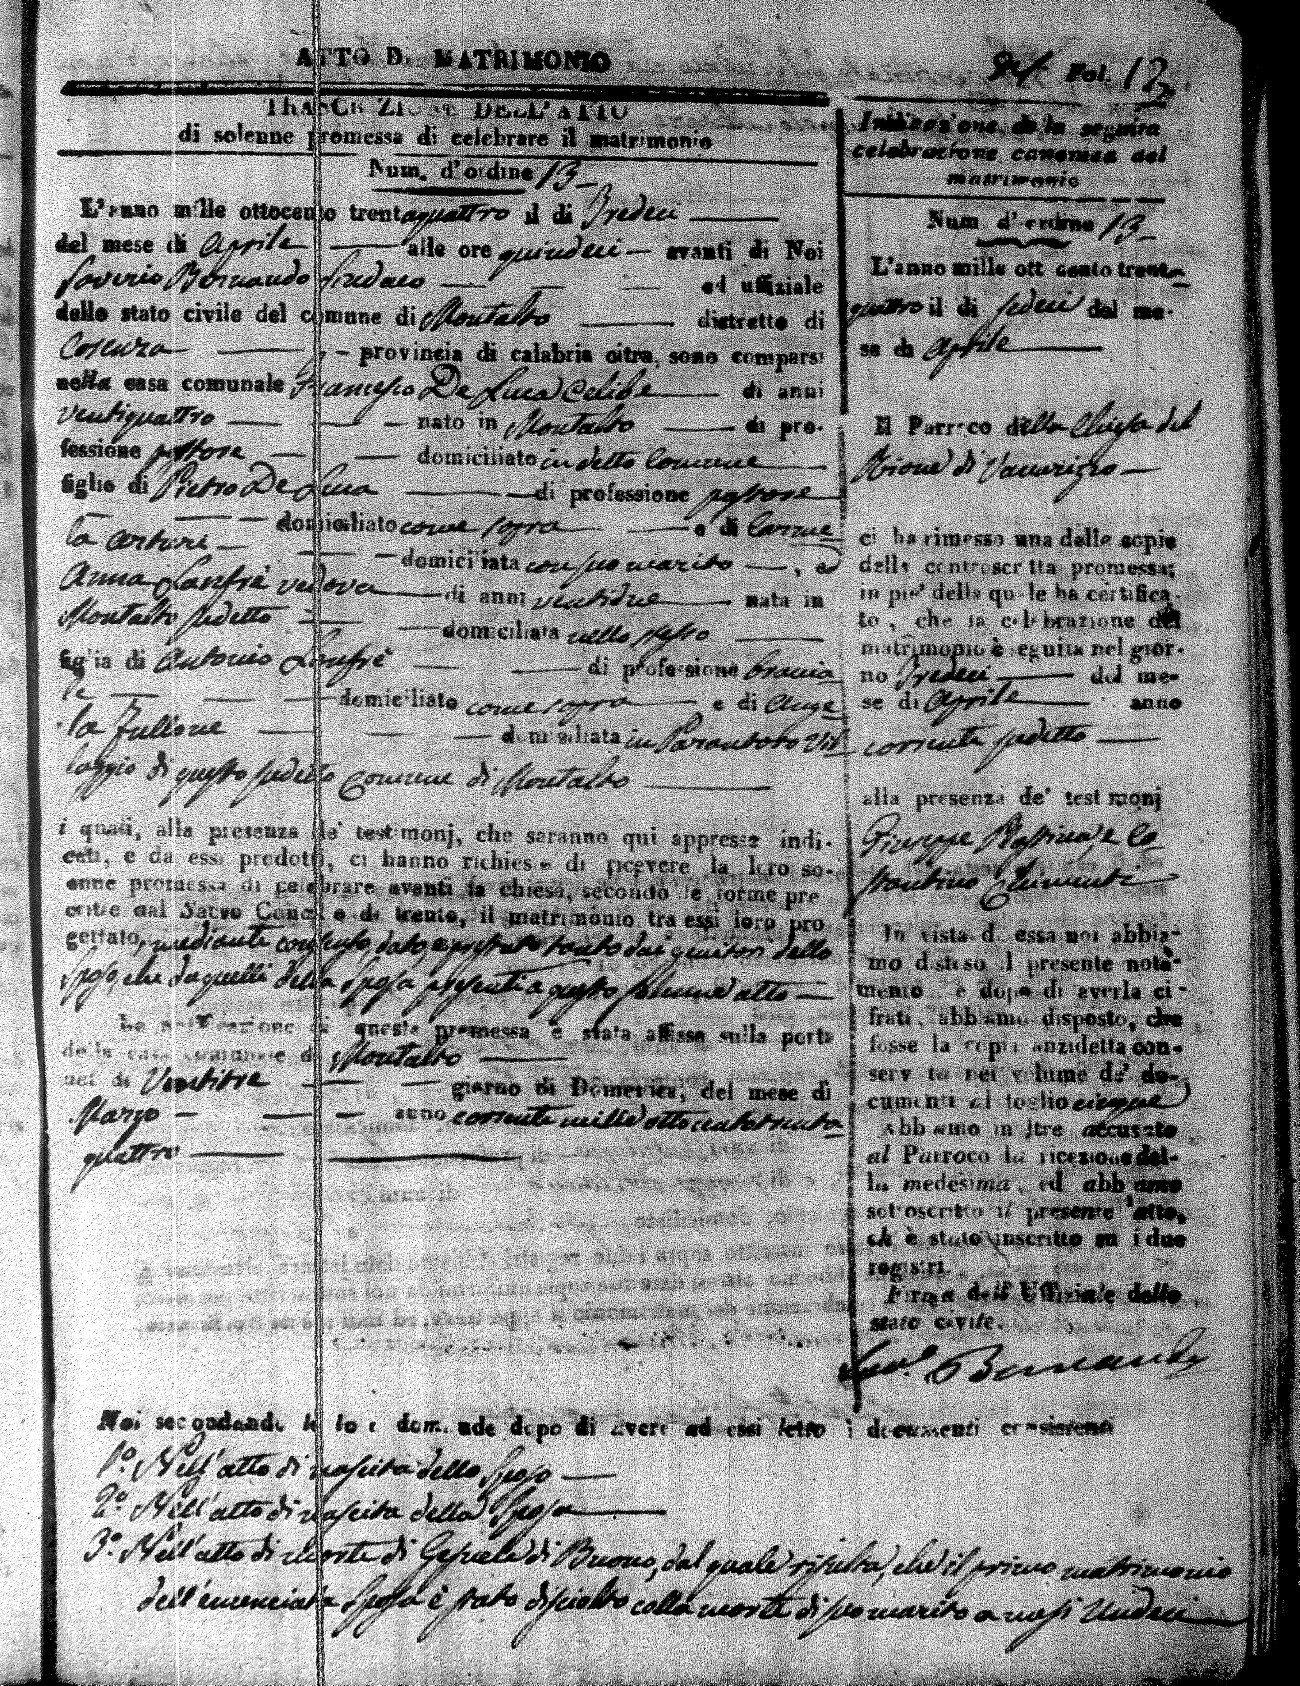 ATTO DI MATRIMONIO
Fol. 12
TRASCRIZIONE DELL'ATTO
di solenne promessa di celebrare il matrimonio
Num. d'ordine 13
L'anno mille ottocento trentaquattro il dì Tredeci
del mese di Aprile alle ore quindeci avanti di Noi
Saverio Bernardo Sindaco ed uffiziale
dello stato civile del comune di Montalto distretto di
Cosenza provincia di calabria citra, sono comparsi
nella casa comunale Francesco De Luca Celibe di anni
ventiquattro nato in Montalto di pro-
fessione pastore domiciliato in detto Comune
figlio di Pietro De Luca di professione pastore
domiciliato come sopra e di Carme
la Arturi domiciliata con suo marito, ed
Anna Lanfrè vedova di anni ventidue nata in
Montalto sudetto domiciliata nello stesso
figlia di Antonio Lanfrè di professione braccia
le domiciliato come sopra e di Ange
la Zullone domiciliata in Parantoro Vil
laggio di questo sudetto Comune di Montalto
i quali, alla presenza de' testimonj, che saranno qui appresso indi-
cati, e da essi predotti, ci hanno richiesto di ricevere la loro so-
enne promessa di celebrare avanti la chiesa, secondo le forme pre
critte dal Sacro Concilio di trento, il matrimonio tra essi loro pro
gettato, mediante consenso, dato a prestato tanto dai genitori dello
Sposo, che da quelli della Sposa presenti a questo solenne atto
La notificazione di questa promessa è stata affissa sulla porta
della casa comunale di Montalto
nel dì Ventitre giorno di Domenica, del mese di
Marzo anno corrente mille ottocentotrenta
quattro
Noi secondando le loro domande dopo di avere ad essi letto i documenti consistenti
1º. Nell'atto di nascita dello Sposo
2º. Nell'atto di nascita della Sposa
3º. Nell'atto di Morte di di Buono, dal quale risulta, che il primo matrimonio
dell'enunciata Sposa è stato disciolto colla morte di suo marito a messi Undeci
Indicazione della seguita
celebrazione canonica del
matrimonio
Num. d'ordine 13
L'anno mille ottocento trenta
quattro il di sedeci del me-
se di Aprile
Il Parroco della Chiesa del
Rione di Vaccarizzo
ci ha rimesso una delle copie
della controscritta promessa;
in piè della quale ha certifica-
to, che la celebrazione del
matrimonio è seguita nel gior-
no Tredeci del me-
se di Aprile anno
corrente sudetto
alla presenza de' testimonj
Giuseppe e Co
stantino Chimenti
In vista di essa noi abbia-
mo disteso il presente nota-
mento e dopo di averla ci-
frata, abbiamo disposto, che
fosse la copia anzidetta con-
servata nel volume de' do-
cumenti al foglio cinque
Abbiamo inoltre accusato
al Parroco la ricezione del-
la medesima, ed abbiamo
sottoscritto il presente atto,
ch' è stato inscritto su i due
registri.
Firma dell'Uffiziale dello
stato civile.
Sav.o Bernardo